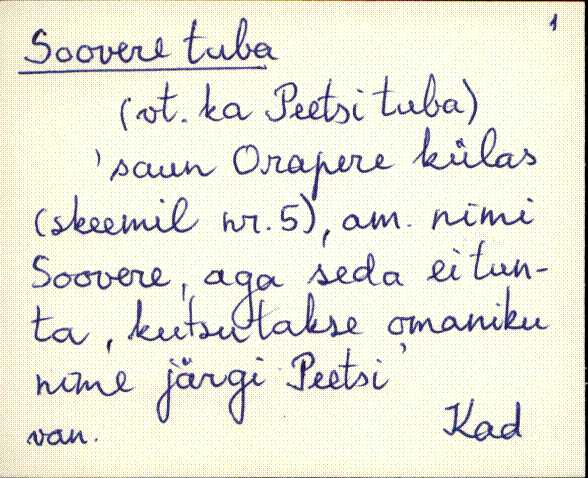 1
Soovere tuba
(vt. ka Peetsi tuba)
'saun Orapere külas
(skeemil nr. 5), am. nimi
Soovere, aga seda ei tun-
ta, kutsutakse omaniku
nime järgi Peetsi'
van. Kad